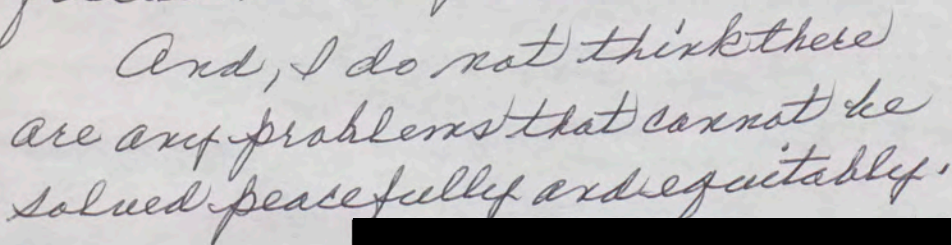 And, I do not think there
are any problems that cannot be
solved peacefully and equitably.